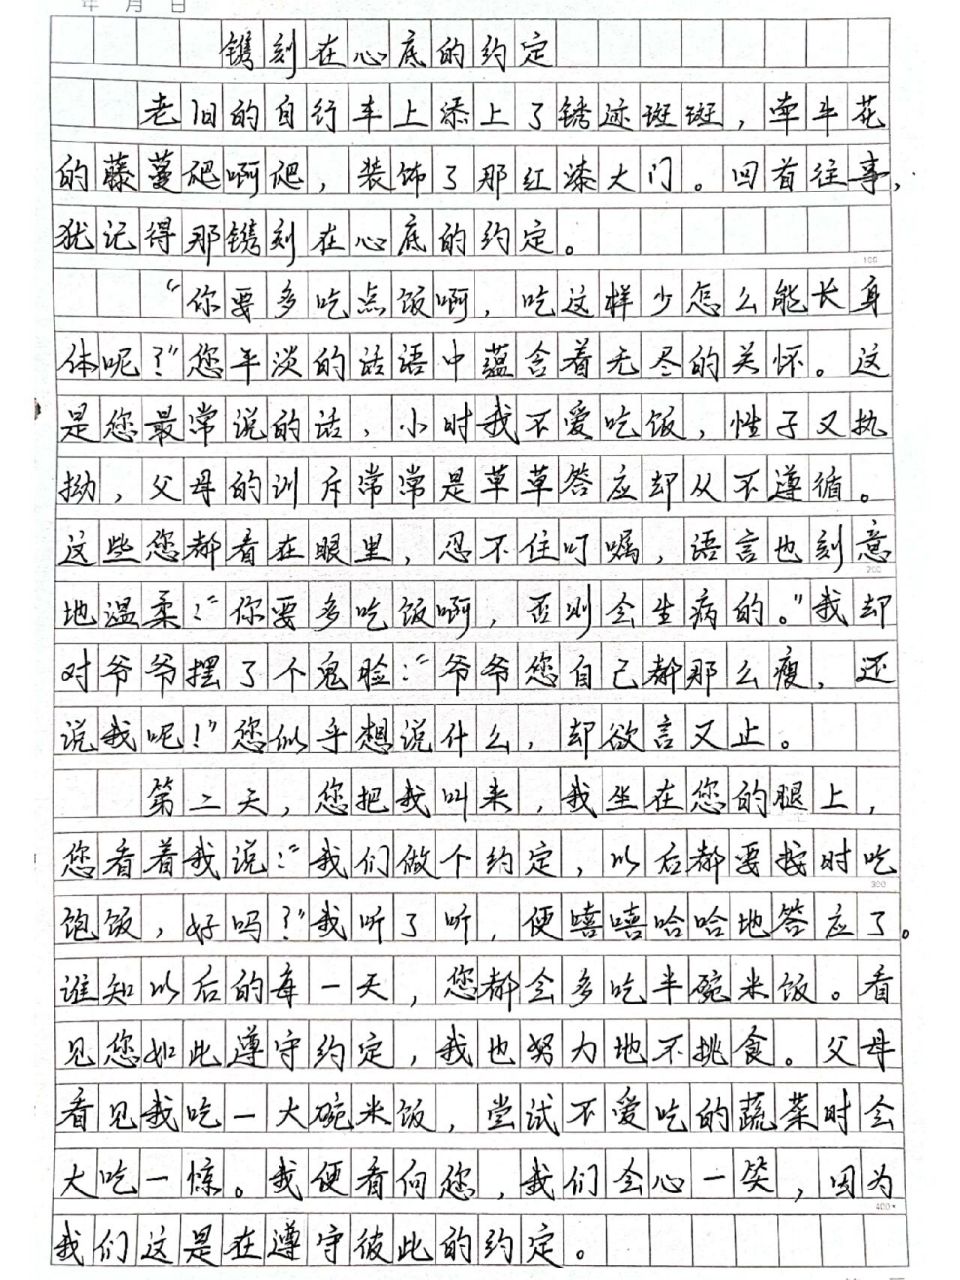 年 月 日
镌刻在心底的约定
老旧的自行车上添上了锈迹斑斑，牵牛花
的藤蔓爬啊爬，装饰了那红漆大门。回首往事，
犹记得那镌刻在心底的约定。
100
“你要多吃点饭啊，吃这样少怎么能长身
体呢？”您平淡的话语中蕴含着无尽的关怀。这
是您最常说的话，小时我不爱吃饭，性子又执
拗，父母的训斥常常是草草答应却从不遵循。
这些您都看在眼里，忍不住叮嘱，语言也刻意
200
地温柔：“你要多吃饭啊，否则会生病的。”我却
对爷爷摆了个鬼脸：“爷爷您自己都那么瘦，还
说我呢！”您似乎想说什么，却欲言又止。
第二天，您把我叫来，我坐在您的腿上，
您看着我说：“我们做个约定，以后都要按时吃
300
饱饭，好吗？”我听了听，便嘻嘻哈哈地答应了。
谁知以后的每一天，您都会多吃半碗米饭。看
见您如此遵守约定，我也努力地不挑食。父母
看见我吃一大碗米饭，尝试不爱吃的蔬菜时会
大吃一惊。我便看向您，我们会心一笑，因为
400
我们这是在遵守彼此的约定。